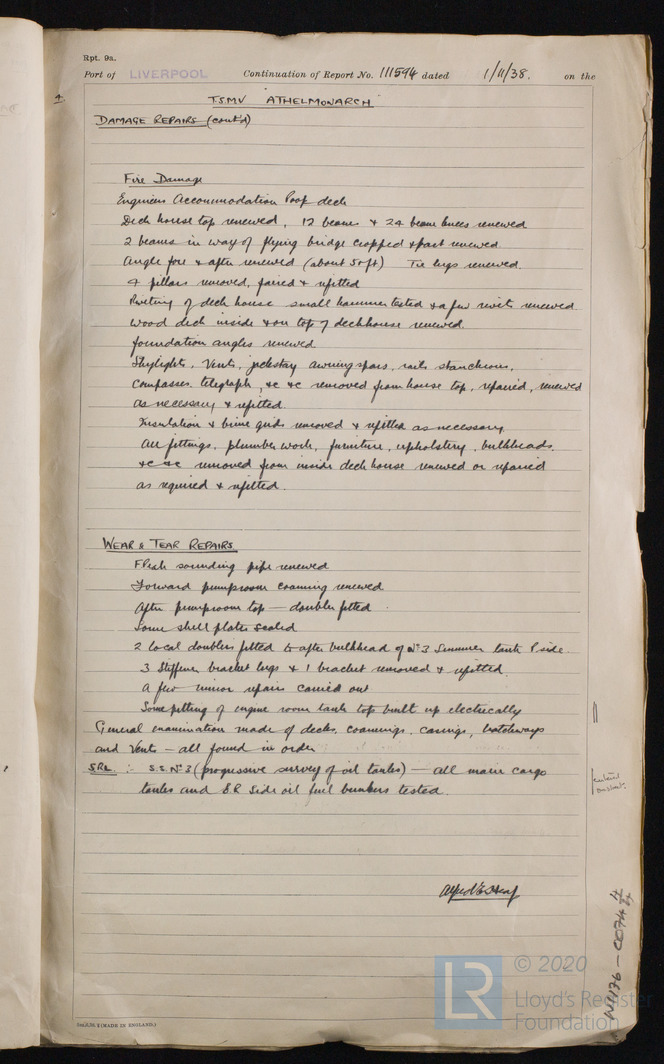 Rpt. 9a.
Port of LIVERPOOL Continuation of Report No. 111594 dated 1/11/38. on the
4.
TSMV "ATHELMONARCH"
DAMAGE REPAIRS (cont'd)
Fire Damage
Engineers Accommodation Poop deck
Deck house top renewed, 12 beams & 24 beam knees renewed
2 beams in way of flying bridge cropped & part renewed
Angle fore & after renewed (about 50 ft) Tie lugs renewed.
4 pillars removed, faired & refitted
Riveting of deck house small hammer tested & a few rivets renewed
Wood deck inside & on top of deckhouse renewed.
foundation angles renewed
Skylights, Vents, jackstay awning spars, rails stanchions,
compasses, telegraph, &c &c removed from house top, repaired, renewed
as necessary & refitted.
Insulation & brine grids removed & refitted as necessary
All fittings, plumber work, furniture, upholstery, bulkheads,
&c &c removed from inside deck house renewed or repaired
as required & refitted.
WEAR & TEAR REPAIRS
sounding pipe renewed
Forward pumproom coaming renewed
After pumproom top — doubler fitted
Some shell plates sealed
2 local doublers fitted to after bulkhead of No 3 Summer tank P side.
3 Stiffener bracket lugs & 1 bracket removed & refitted.
A few minor repairs carried out
Some pitting of engine room tank top built up electrically
General examination made of decks, coamings, casings, hatchways
and Vents — all found in order
SRL :- S.S. No 3 (progressive survey of oil tanks) — all main cargo
tanks and ER Side oil fuel bunkers tested.
W1176-0074 4/4
© 2020
LR Lloyd's Register
Foundation
(MADE IN ENGLAND.)